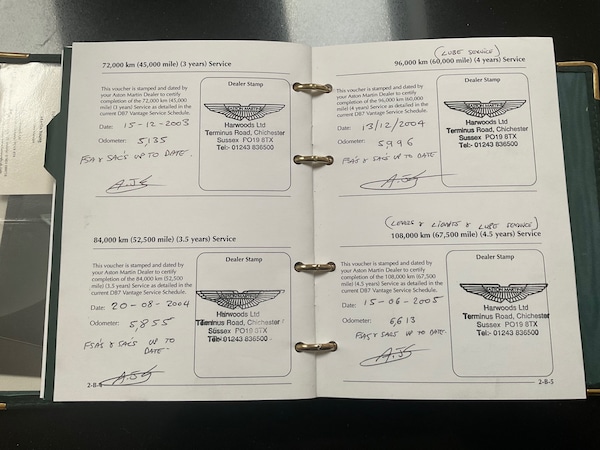 72,000 km (45,000 miles) (3 years) Service
This voucher is stamped and dated by
your Aston Martin Dealer to certify
completion of the 72,000 km (45,000
mile) (3 years) Service as detailed in the
current DB7 Vantage Service Schedule.
Date: 15-12-2003
Odometer: 5,135
FSA'S & SAC'S UP TO DATE.
Dealer Stamp
ASTON MARTIN
Harwoods Ltd
Terminus Road, Chichester
Sussex PO19 8TX
Tel:- 01243 836500
84,000 km (52,500 mile) (3.5 years) Service
This voucher is stamped and dated by
your Aston Martin Dealer to certify
completion of the 84,000 km (52,500
mile) (3.5 years) Service as detailed in the
current DB7 Vantage Service Schedule.
Date: 20-08-2004
Odometer: 5,855
FSA'S & SAC'S UP TO
DATE.
Dealer Stamp
Harwoods Ltd
Terminus Road, Chichester
Sussex PO19 8TX
Tel:- 01243 836500
2-8-4
(LUBE SERVICE)
96,000 km (60,000 mile) (4 years) Service
This voucher is stamped and dated by
your Aston Martin Dealer to certify
completion of the 96,000 km (60,000
mile) (4 years) Service as detailed in the
current DB7 Vantage Service Schedule.
Date: 13/12/2004
Odometer: 5996
FSA'S & SAC'S UP TO DATE
Dealer Stamp
ASTON MARTIN
Harwoods Ltd
Terminus Road, Chichester
Sussex PO19 8TX
Tel:- 01243 836500
(LEVELS & LIGHTS & LUBE SERVICE)
108,000 km (67,500 mile) (4.5 years) Service
This voucher is stamped and dated by
your Aston Martin Dealer to certify
completion of the 108,000 km (67,500
mile) (4.5 years) Service as detailed in the
current DB7 Vantage Service Schedule.
Date: 15-06-2005
Odometer: 6,613
FSA'S & SAC'S UP TO DATE.
Dealer Stamp
ASTON MARTIN
Harwoods Ltd
Terminus Road, Chichester
Sussex PO19 8TX
Tel:- 01243 836500
2-8-5